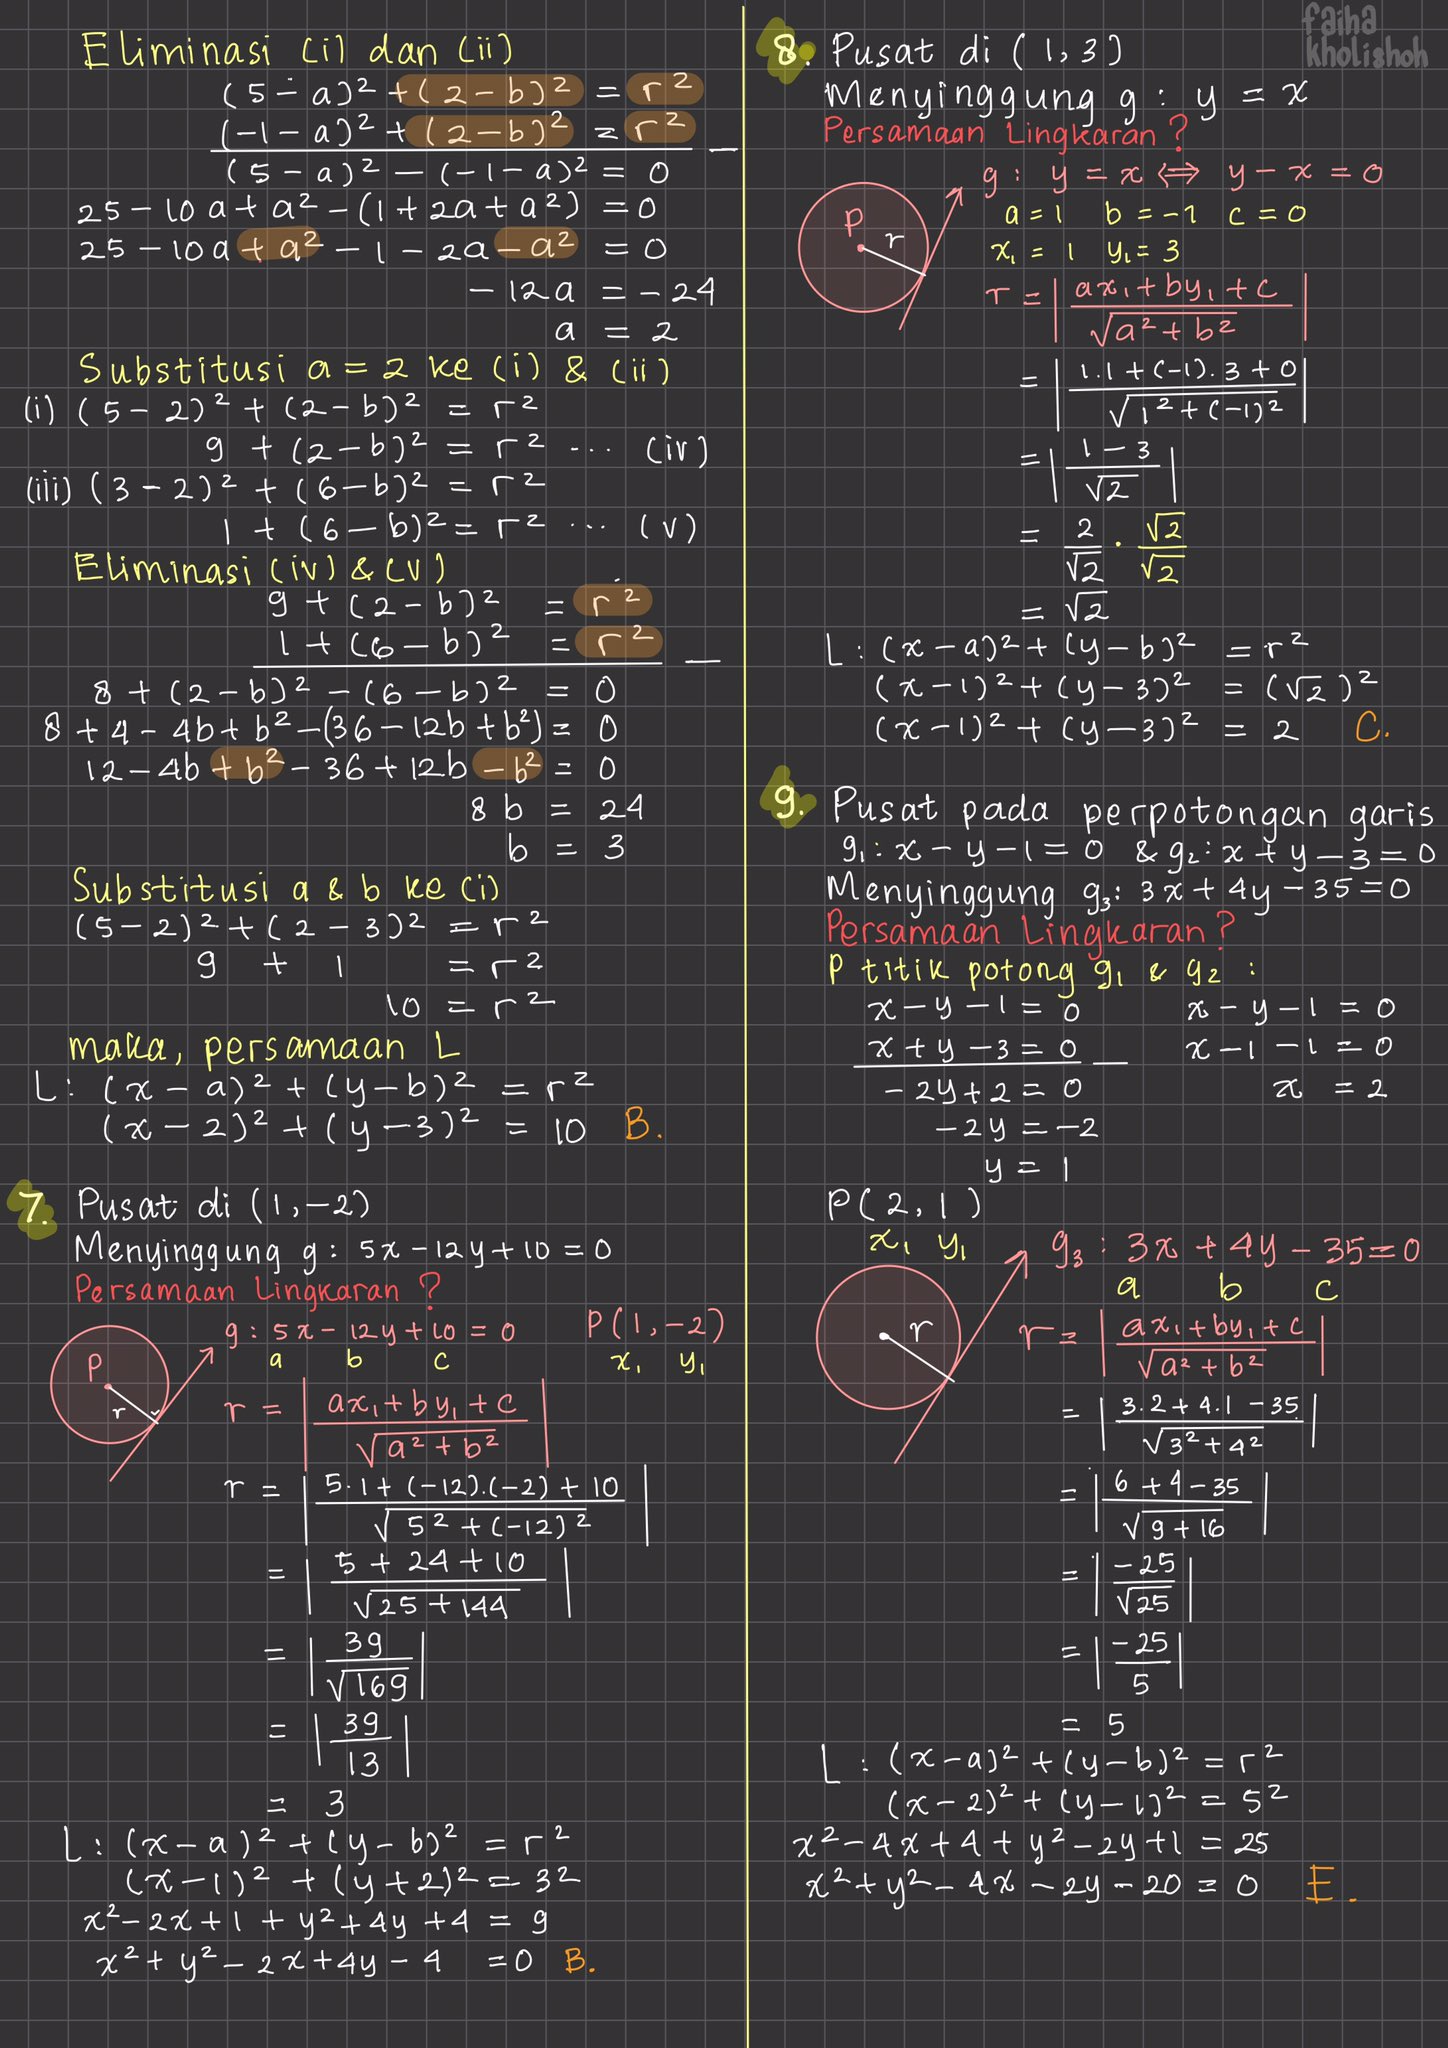 Eliminasi (i) dan (ii)
(5 - a)² + (2 - b)² = r²
(-1 - a)² + (2 - b)² = r²
(5 - a)² - (-1 - a)² = 0
25 - 10a + a² - (1 + 2a + a²) = 0
25 - 10a + a² - 1 - 2a - a² = 0
-12a = -24
a = 2
Substitusi a = 2 ke (i) & (ii)
(i) (5 - 2)² + (2 - b)² = r²
9 + (2 - b)² = r² ... (iv)
(iii) (3 - 2)² + (6 - b)² = r²
1 + (6 - b)² = r² ... (v)
Eliminasi (iv) & (v)
9 + (2 - b)² = r²
1 + (6 - b)² = r²
8 + (2 - b)² - (6 - b)² = 0
8 + 4 - 4b + b² - (36 - 12b + b²) = 0
12 - 4b + b² - 36 + 12b - b² = 0
8b = 24
b = 3
Substitusi a & b ke (i)
(5 - 2)² + (2 - 3)² = r²
9 + 1 = r²
10 = r²
maka, persamaan L
L: (x - a)² + (y - b)² = r²
(x - 2)² + (y - 3)² = 10 B.
7. Pusat di (1, -2)
Menyinggung g: 5x - 12y + 10 = 0
Persamaan Lingkaran?
g: 5x - 12y + 10 = 0 P(1, -2)
a b c x₁ y₁
P
r
r = | ax₁ + by₁ + c / √a² + b² |
r = | 5.1 + (-12).(-2) + 10 / √5² + (-12)² |
= | 5 + 24 + 10 / √25 + 144 |
= | 39 / √169 |
= | 39 / 13 |
= 3
L: (x - a)² + (y - b)² = r²
(x - 1)² + (y + 2)² = 3²
x² - 2x + 1 + y² + 4y + 4 = 9
x² + y² - 2x + 4y - 4 = 0 B.
faiha
kholishoh
8. Pusat di (1, 3)
Menyinggung g: y = x
Persamaan Lingkaran?
g: y = x ⟺ y - x = 0
a = 1 b = -1 c = 0
x₁ = 1 y₁ = 3
P
r
r = | ax₁ + by₁ + c / √a² + b² |
= | 1.1 + (-1).3 + 0 / √1² + (-1)² |
= | 1 - 3 / √2 |
= 2/√2 . √2/√2
= √2
L: (x - a)² + (y - b)² = r²
(x - 1)² + (y - 3)² = (√2)²
(x - 1)² + (y - 3)² = 2 C.
9. Pusat pada perpotongan garis
g₁: x - y - 1 = 0 & g₂: x + y - 3 = 0
Menyinggung g₃: 3x + 4y - 35 = 0
Persamaan Lingkaran?
P titik potong g₁ & g₂ :
x - y - 1 = 0 x - y - 1 = 0
x + y - 3 = 0 x - 1 - 1 = 0
-2y + 2 = 0 x = 2
-2y = -2
y = 1
P(2, 1)
x₁ y₁
g₃: 3x + 4y - 35 = 0
a b c
r
r = | ax₁ + by₁ + c / √a² + b² |
= | 3.2 + 4.1 - 35 / √3² + 4² |
= | 6 + 4 - 35 / √9 + 16 |
= | -25 / √25 |
= | -25 / 5 |
= 5
L: (x - a)² + (y - b)² = r²
(x - 2)² + (y - 1)² = 5²
x² - 4x + 4 + y² - 2y + 1 = 25
x² + y² - 4x - 2y - 20 = 0 E.